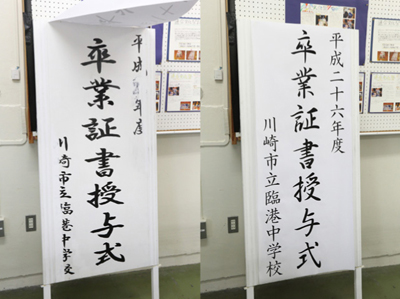 平成
年度
卒業証書授与式
川崎市立臨港中学校
平成二十六年度
卒業証書授与式
川崎市立臨港中学校